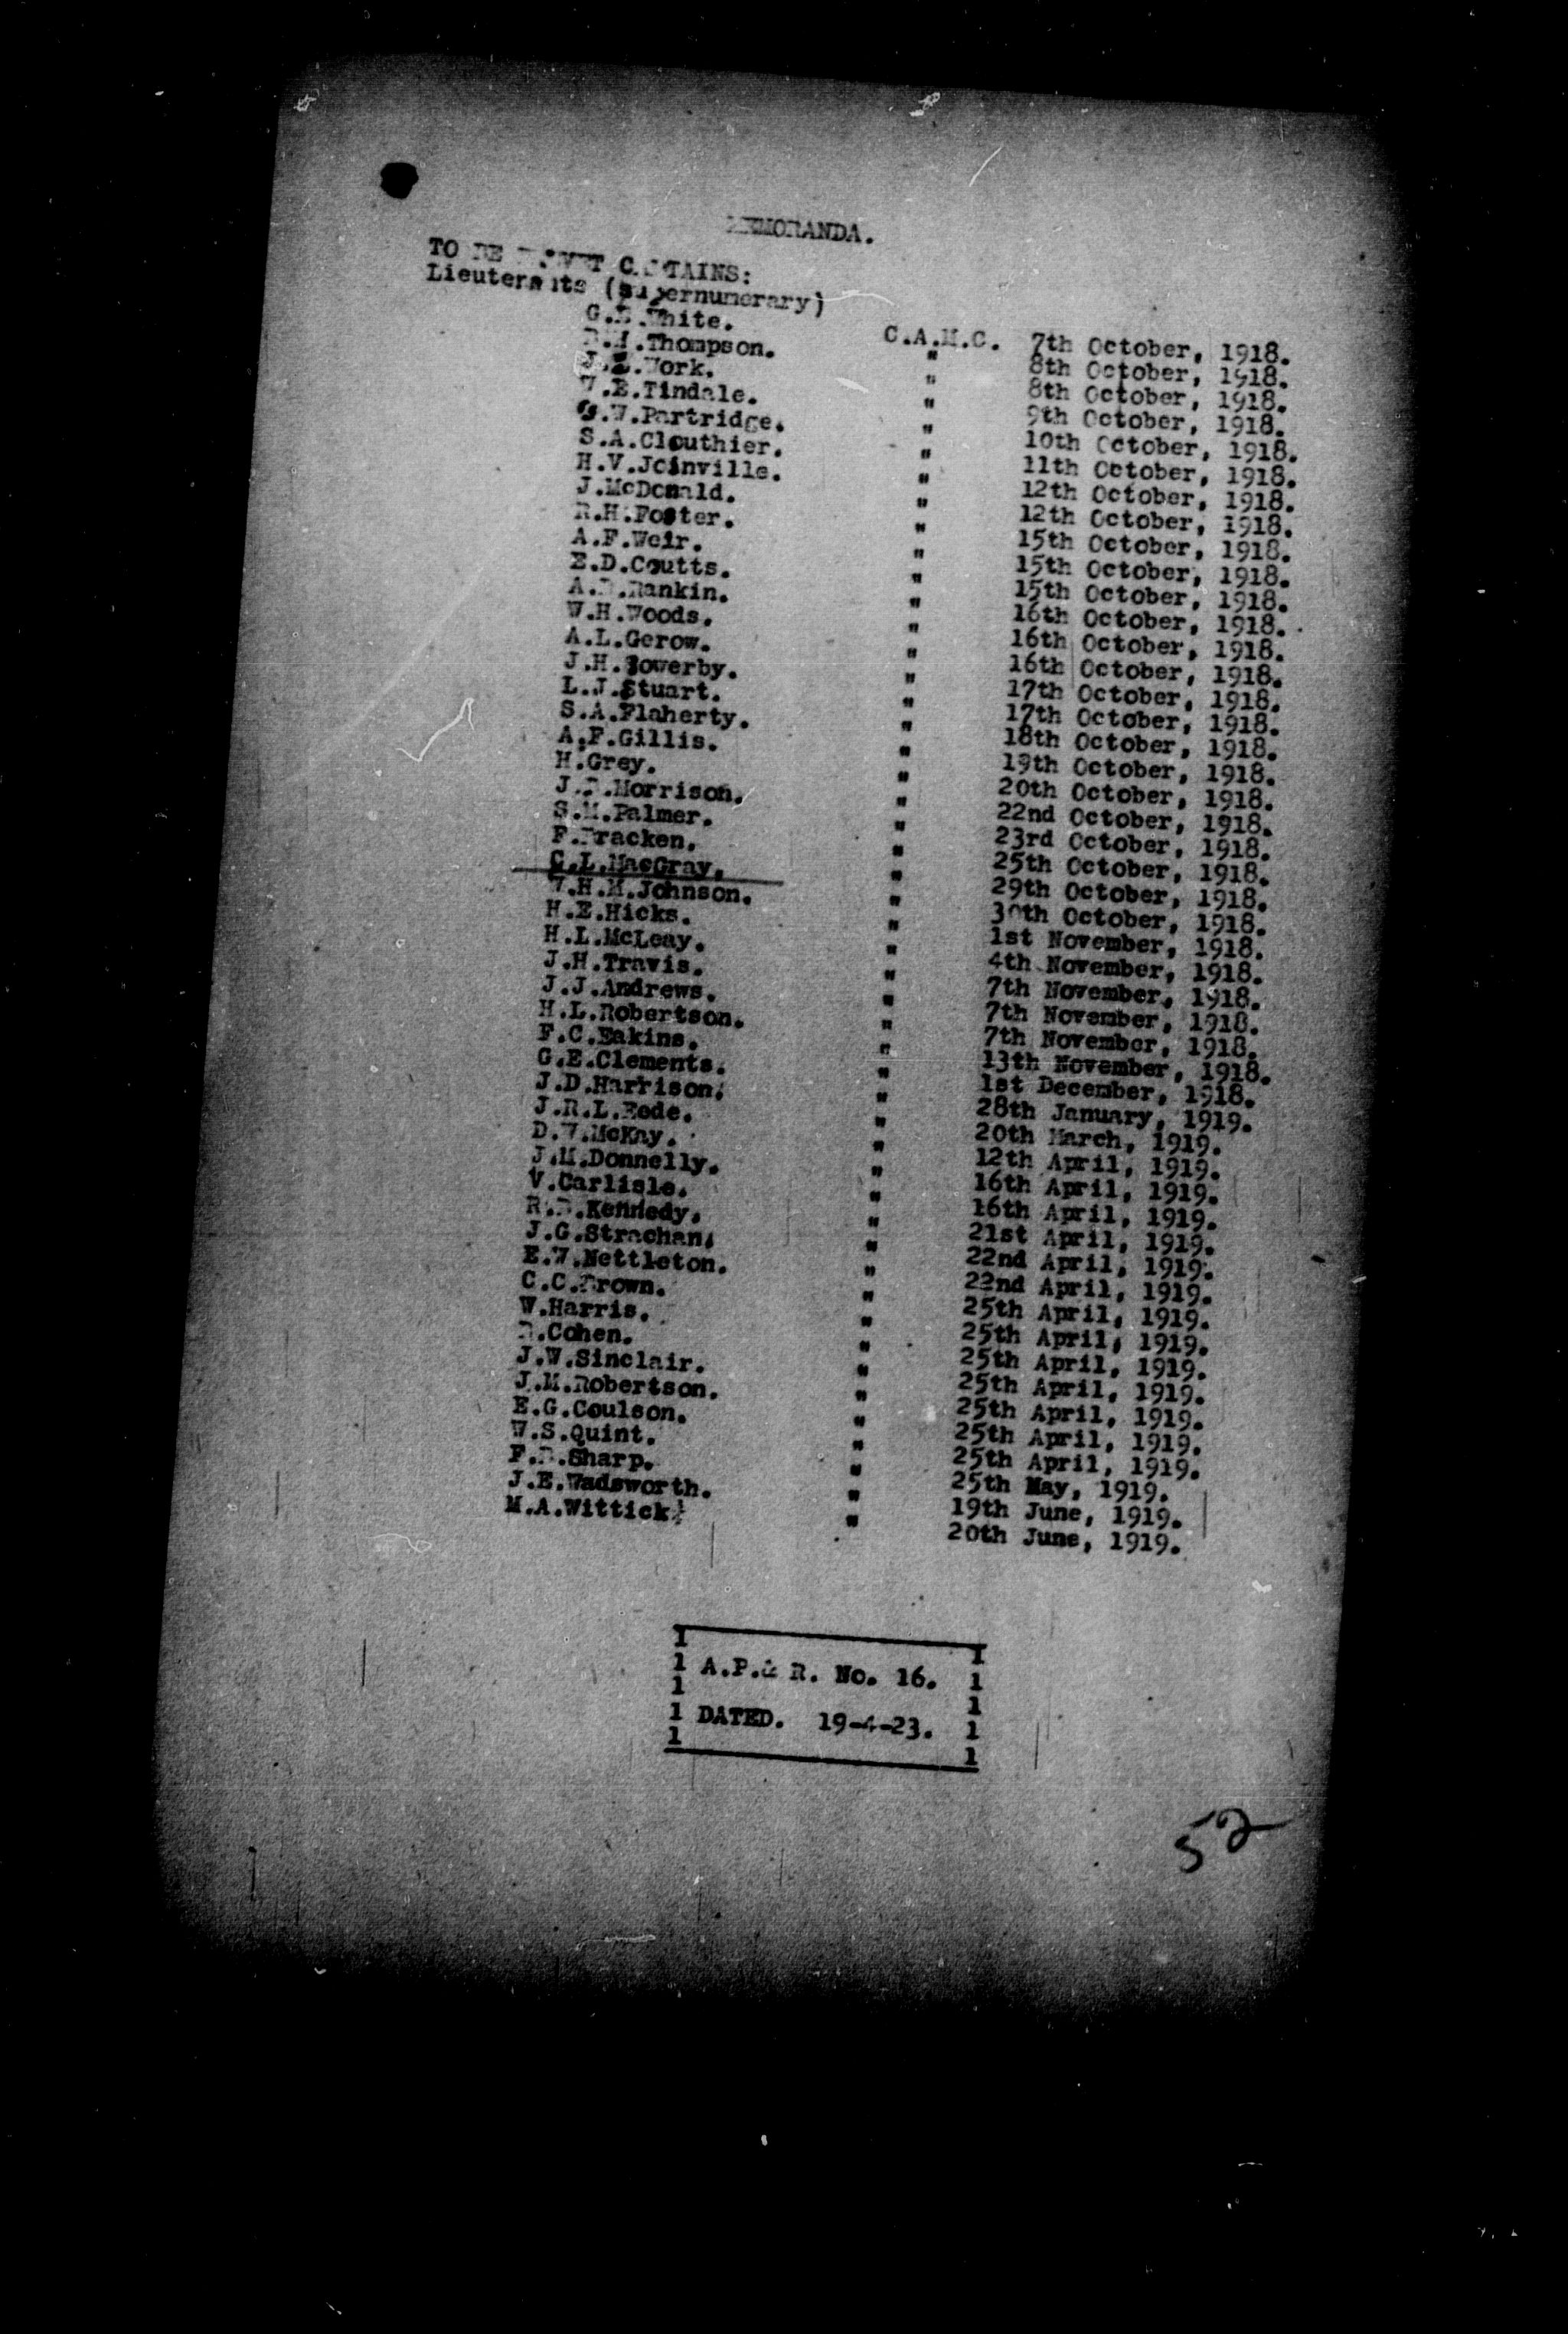 MEMORANDA.
TO BE BREVET CAPTAINS:
Lieutenants (supernumerary)
G.B.White. C.A.M.C. 7th October, 1918.
Thompson. " 8th October, 1918.
" 8th October, 1918.
W.E.Tindale. " 9th October, 1918.
G.W.Partridge. " 10th October, 1918.
S.A.Clouthier. " 11th October, 1918.
H.V.Joinville. " 12th October, 1918.
J.McDonald. " 12th October, 1918.
R.H.Foster. " 15th October, 1918.
A.F.Weir. " 15th October, 1918.
E.D.Coutts. " 15th October, 1918.
A.B.Rankin. " 16th October, 1918.
W.H.Woods. " 16th October, 1918.
A.L.Gerow. " 16th October, 1918.
J.H.Sowerby. " 17th October, 1918.
L.J.Stuart. " 17th October, 1918.
S.A.Flaherty. " 18th October, 1918.
A.F.Gillis. " 19th October, 1918.
H.Grey. " 20th October, 1918.
J.B.Morrison. " 22nd October, 1918.
S.M.Palmer. " 23rd October, 1918.
F.Bracken. " 25th October, 1918.
C.L.MacGray. " 29th October, 1918.
W.H.M.Johnson. " 30th October, 1918.
H.E.Hicks. " 1st November, 1918.
H.L.McLeay. " 4th November, 1918.
J.H.Travis. " 7th November, 1918.
J.J.Andrews. " 7th November, 1918.
H.L.Robertson. " 7th November, 1918.
F.C.Eakins. " 13th November, 1918.
G.E.Clements. " 1st December, 1918.
J.D.Harrison. " 28th January, 1919.
J.R.L.Eede. " 20th March, 1919.
D.W.McKay. " 12th April, 1919.
J.M.Donnelly. " 16th April, 1919.
V.Carlisle. " 16th April, 1919.
R.B.Kennedy. " 21st April, 1919.
J.G.Strachan. " 22nd April, 1919.
E.W.Nettleton. " 22nd April, 1919.
C.C.Brown. " 25th April, 1919.
W.Harris. " 25th April, 1919.
B.Cohen. " 25th April, 1919.
J.W.Sinclair. " 25th April, 1919.
J.M.Robertson. " 25th April, 1919.
E.G.Coulson. " 25th April, 1919.
W.S.Quint. " 25th April, 1919.
F.B.Sharp. " 25th May, 1919.
J.E.Wadsworth. " 19th June, 1919.
M.A.Wittick. " 20th June, 1919.
A.P.& R. No. 16.
DATED. 19-4-23.
52